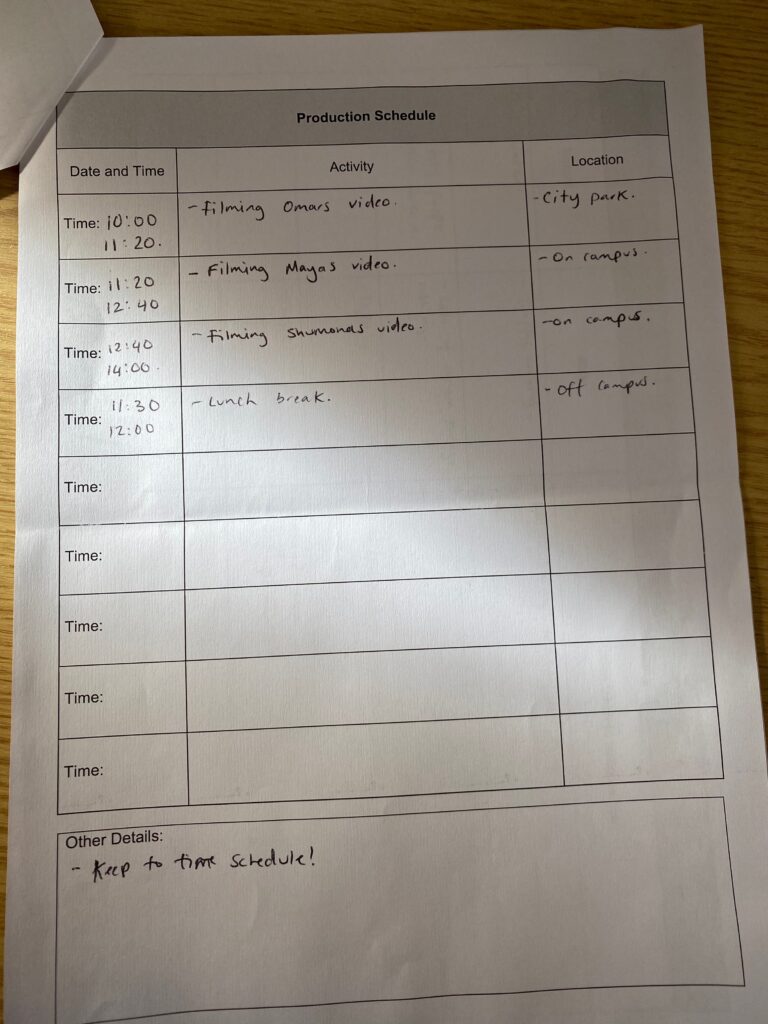 Production Schedule
Date and Time Activity Location
Time: 10:00 - filming Omars video. - City park.
11:20.
Time: 11:20 - Filming Mayas video. - On campus.
12:40
Time: 12:40 - Filming Shumonas video. - on campus.
14:00.
Time: 11:30 - Lunch break. - Off campus.
12:00
Time:
Time:
Time:
Time:
Time:
Other Details:
- Keep to time schedule!